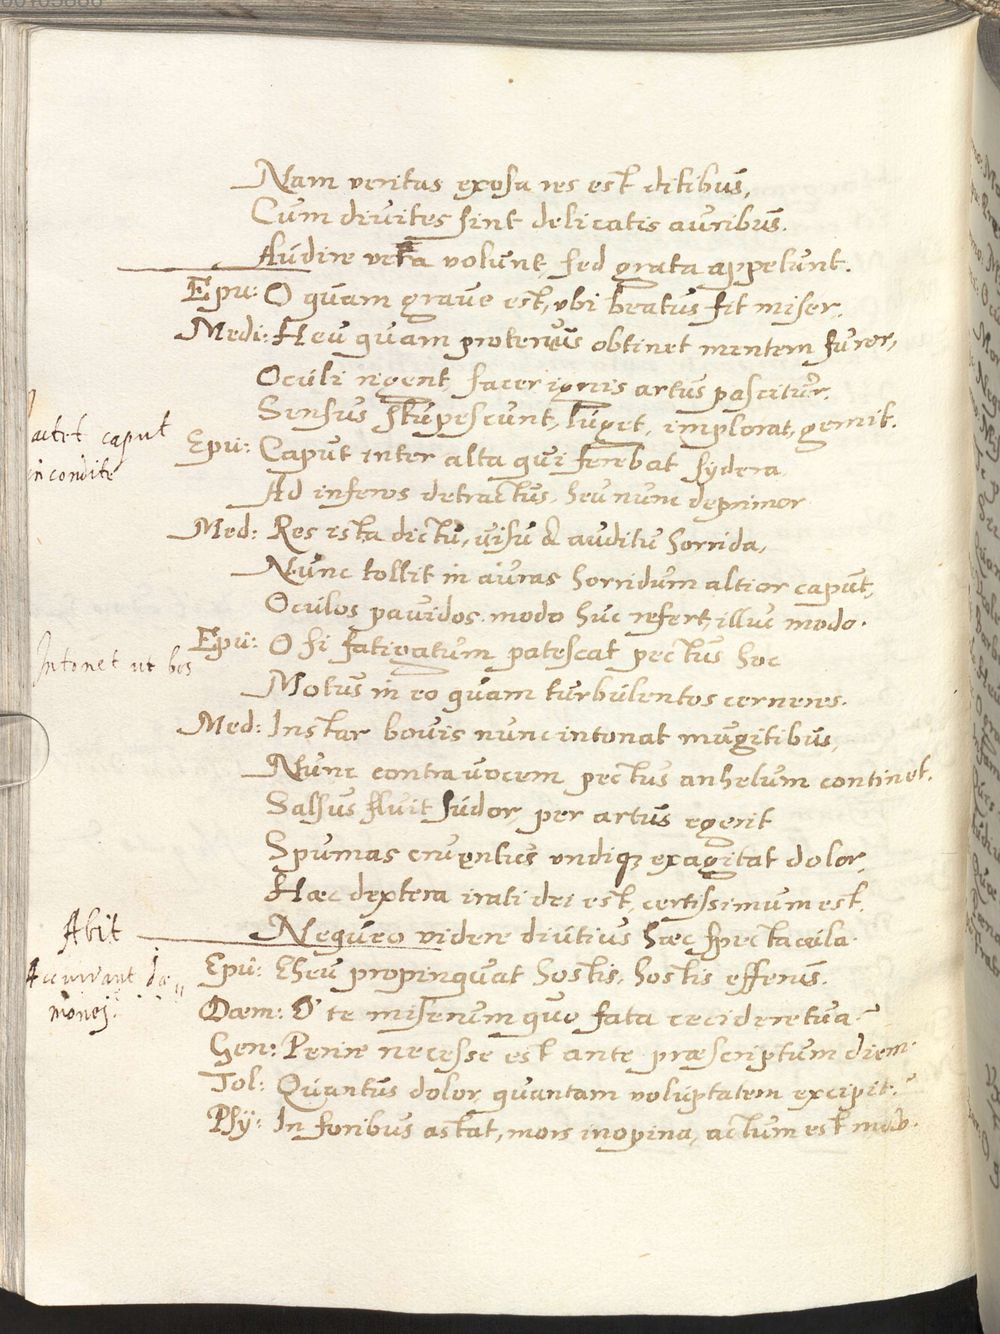 Nam veritas exosa res est ditibus,
Cum divites sint delicatis auribus.
Audire vera volunt, sed grata appetunt.
Epu: O quam grave est, ubi beatus fit miser.
Medi: Heu quam protervus obtinet mentem furor,
Oculi rigent, sacer ignis artus pascitur.
Sensus stupescunt, luget, implorat, gemit.
Iactet caput
incondite
Epu: Caput inter alta qui ferebat sydera
Ad inferos detractus, heu nunc deprimor
Med: Res ista dictu, visu & auditu horrida,
Nunc tollit in auras horridum altior caput,
Oculos pavidos modo huc refert, illuc modo.
Intonet ut bos
Epu: O si fatigatum patescat pectus hoc
Motus in eo quam turbulentos cerneres.
Med: Instar bovis nunc intonat mugitibus,
Nunc contra vocem pectus anhelum continet.
Salsus fluit sudor, per artus egerit
Spumas cruentus undiqz exagitat dolor,
Haec dextera irati dei est, certissimum est,
Abit
Nequeo videre diutius haec spectacula.
Accurrant Dae
mones.
Epu: Eheu propinquat hostis, hostis efferus.
Daem: O te miserum quo fata cecidere tua?
Gen: Perire necesse est ante praescriptum diem.
Tol: Quantus dolor quantam voluptatem excipit?
Psy: In foribus astat, mors inopina, actum est modo.